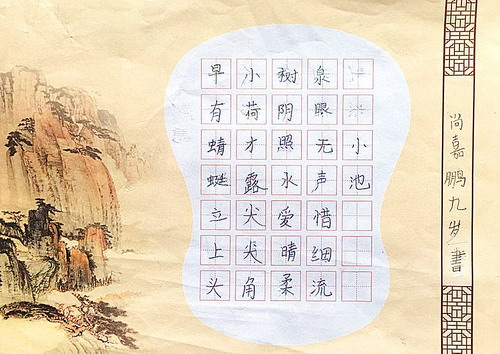 小池
泉眼无声惜细流
树阴照水爱晴柔
小荷才露尖尖角
早有蜻蜓立上头
尚嘉鹏九岁書